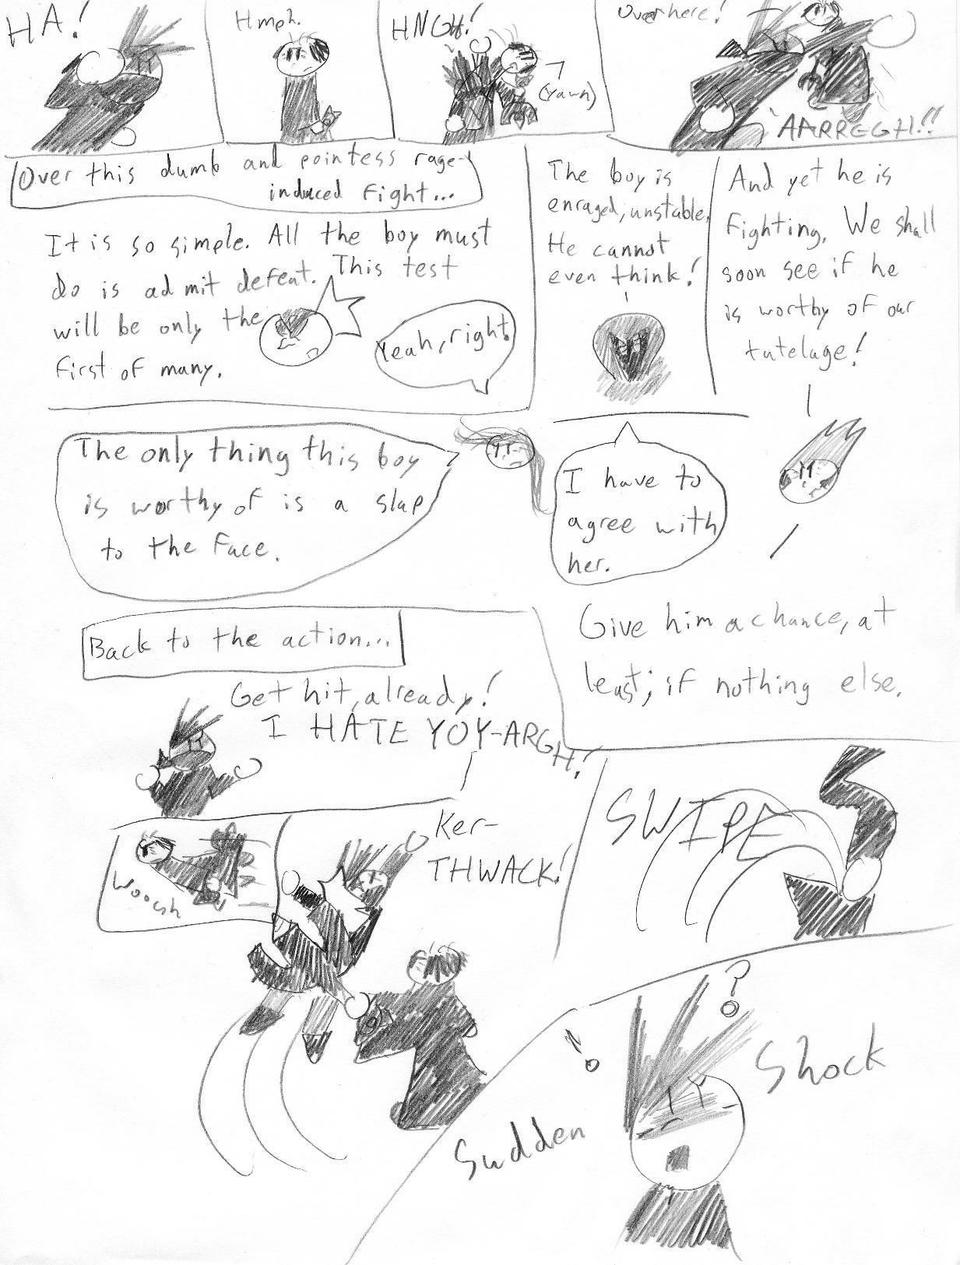 HA!
Hmph.
HNGH!
(Yawn)
Over here!
AARRGGH!!
Over this dumb and pointess rage-
induced fight...
It is so simple. All the boy must
do is admit defeat. This test
will be only the
first of many.
Yeah, right!
The boy is
enraged, unstable.
He cannot
even think!
And yet he is
fighting. We shall
soon see if he
is worthy of our
tutelage!
The only thing this boy
is worthy of is a slap
to the face.
I have to
agree with
her.
Give him a chance, at
least; if nothing else.
Back to the action...
Get hit, already!
I HATE YOY-ARGH!
Woosh
Ker-
THWACK!
SWIPE
! ?
Sudden
Shock